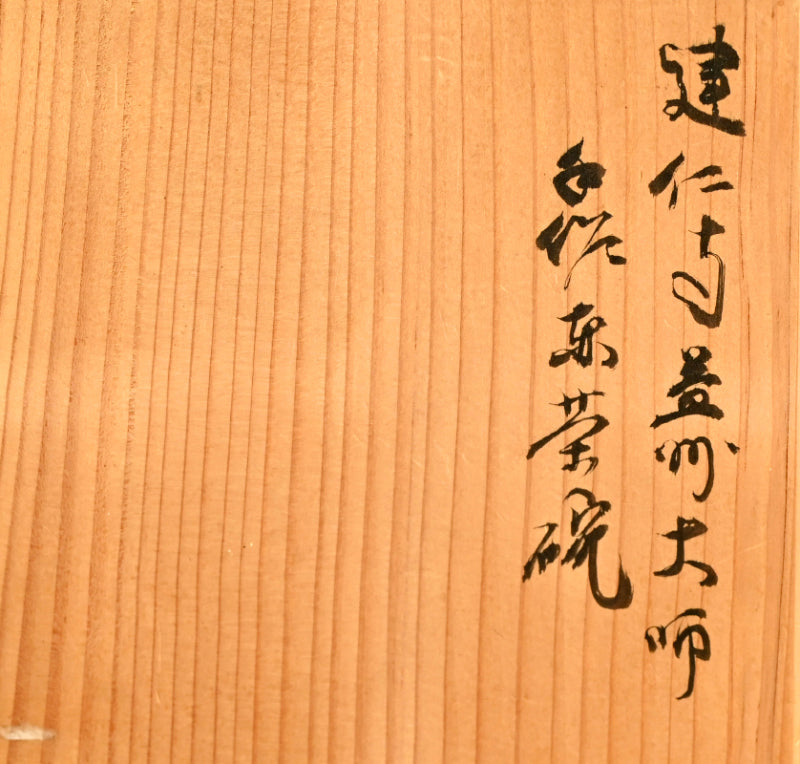 建仁寺益州大師
手作赤茶碗